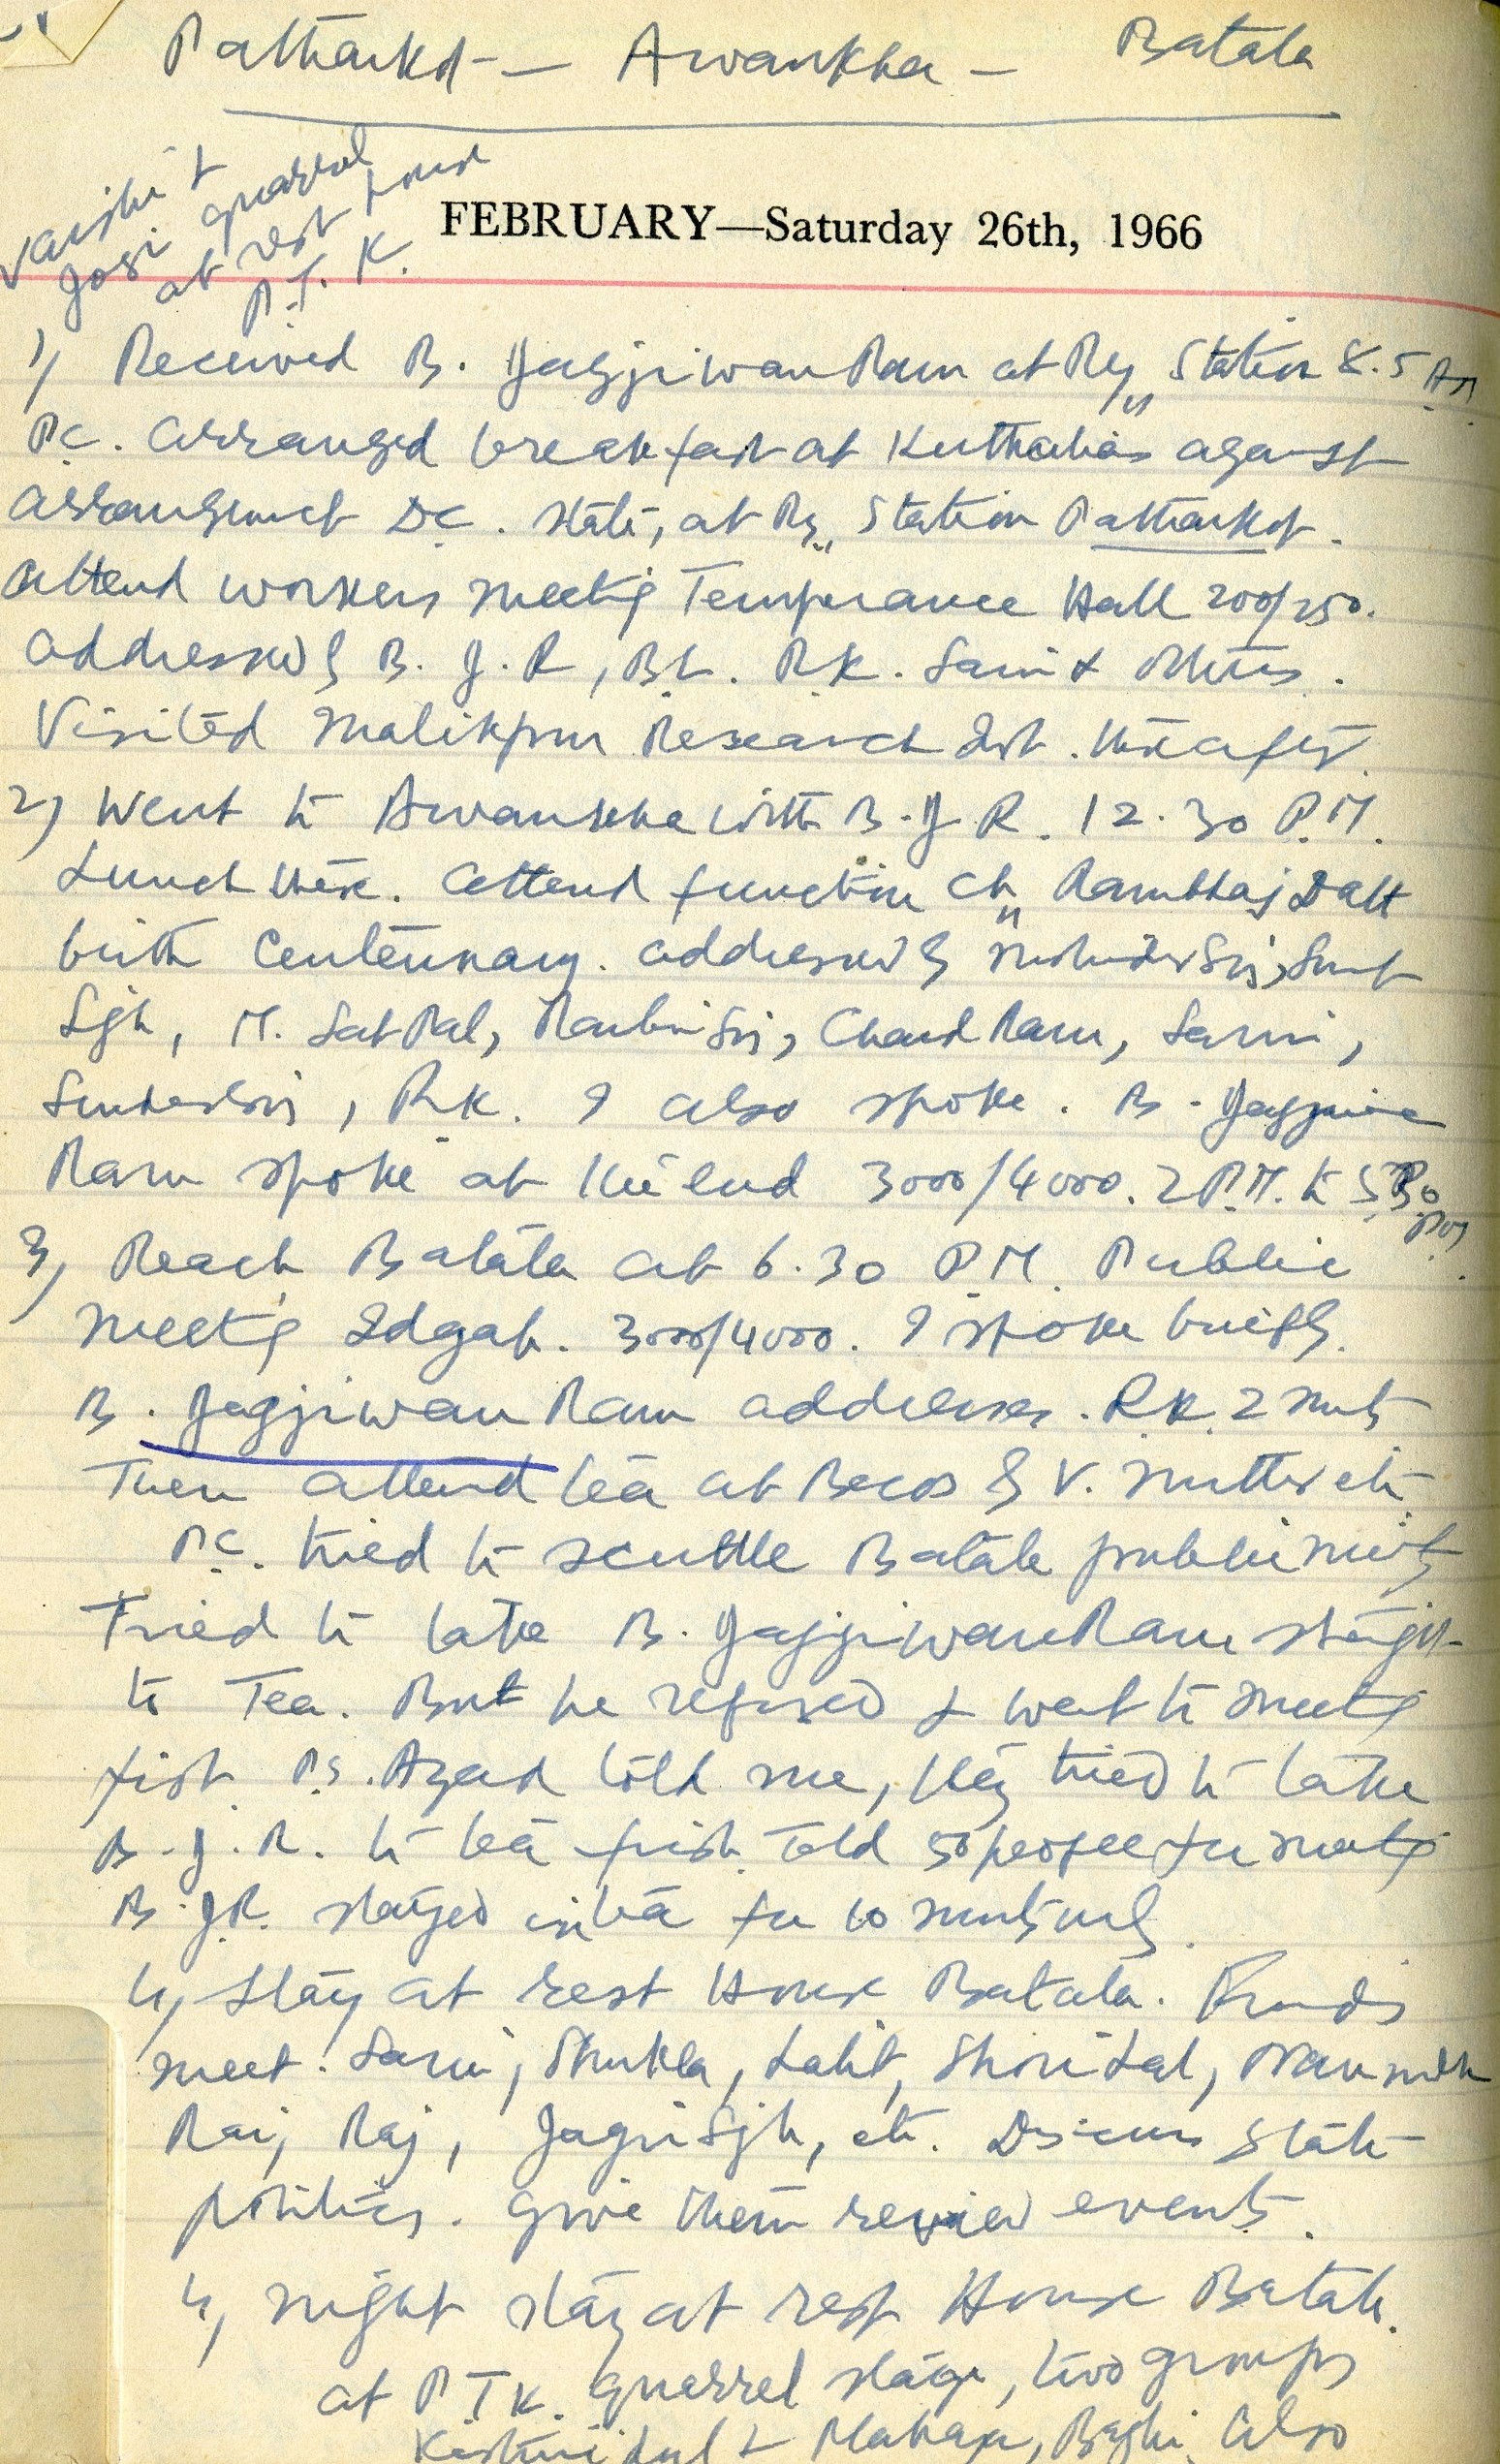 Pathankot — Awankha — Batala
Vaishi &
Jogi quarrel
at rest house
P.T.K.
FEBRUARY—Saturday 26th, 1966
1) Received B. Jagjiwan Ram at Rly Station 8.5 AM
P.C. arranged breakfast at Kuthalias against
arrangement D.C. State, at Rly Station Pathankot.
Attend workers meeting Temperance Hall 200/250.
addressed by B. J. R, Bh. R.K. Saini & others.
Visited Malikpur Research Inst. thereafter.
2) Went to Awankha with B. J. R. 12.30 P.M.
Lunch there. Attend function Ch. Rambhaj Datt
birth Centennary. addressed by Mohinder Singh, Sant
Sgh, M. Sat Pal, Chand Ram, Saini,
R.K. I also spoke. B. Jagjiwan
Ram spoke at the end 3000/4000. 2 P.M. to 5.30 PM
3) Reach Batala at 6.30 P.M. Public
meeting Idgah. 3000/4000. I spoke briefly.
B. Jagjiwan Ram addresses. R.K. 2 mnts
Then attend tea at Becos by V. etc
P.C. tried to scuttle Batala public meetg
Tried to take B. Jagjiwan Ram straight
to Tea. But he refused & went to meeting
first. P.S. Azad told me, they tried to take
B. J. R. to tea first. Told 50 people in meeting
B. J.R. stayed in tea for 10 mnts only.
4) Stay at rest House Batala. Friends
meet. Saini, Shukla, Lalit, Shori Lal,
Rai, Raj, Jagir Sgh, etc. Discuss State
politics. Give them review events.
4) Night stay at rest House Batala.
at P.T.K. quarrel stage, two groups
Kashmiri Lal & Mahajan, Also